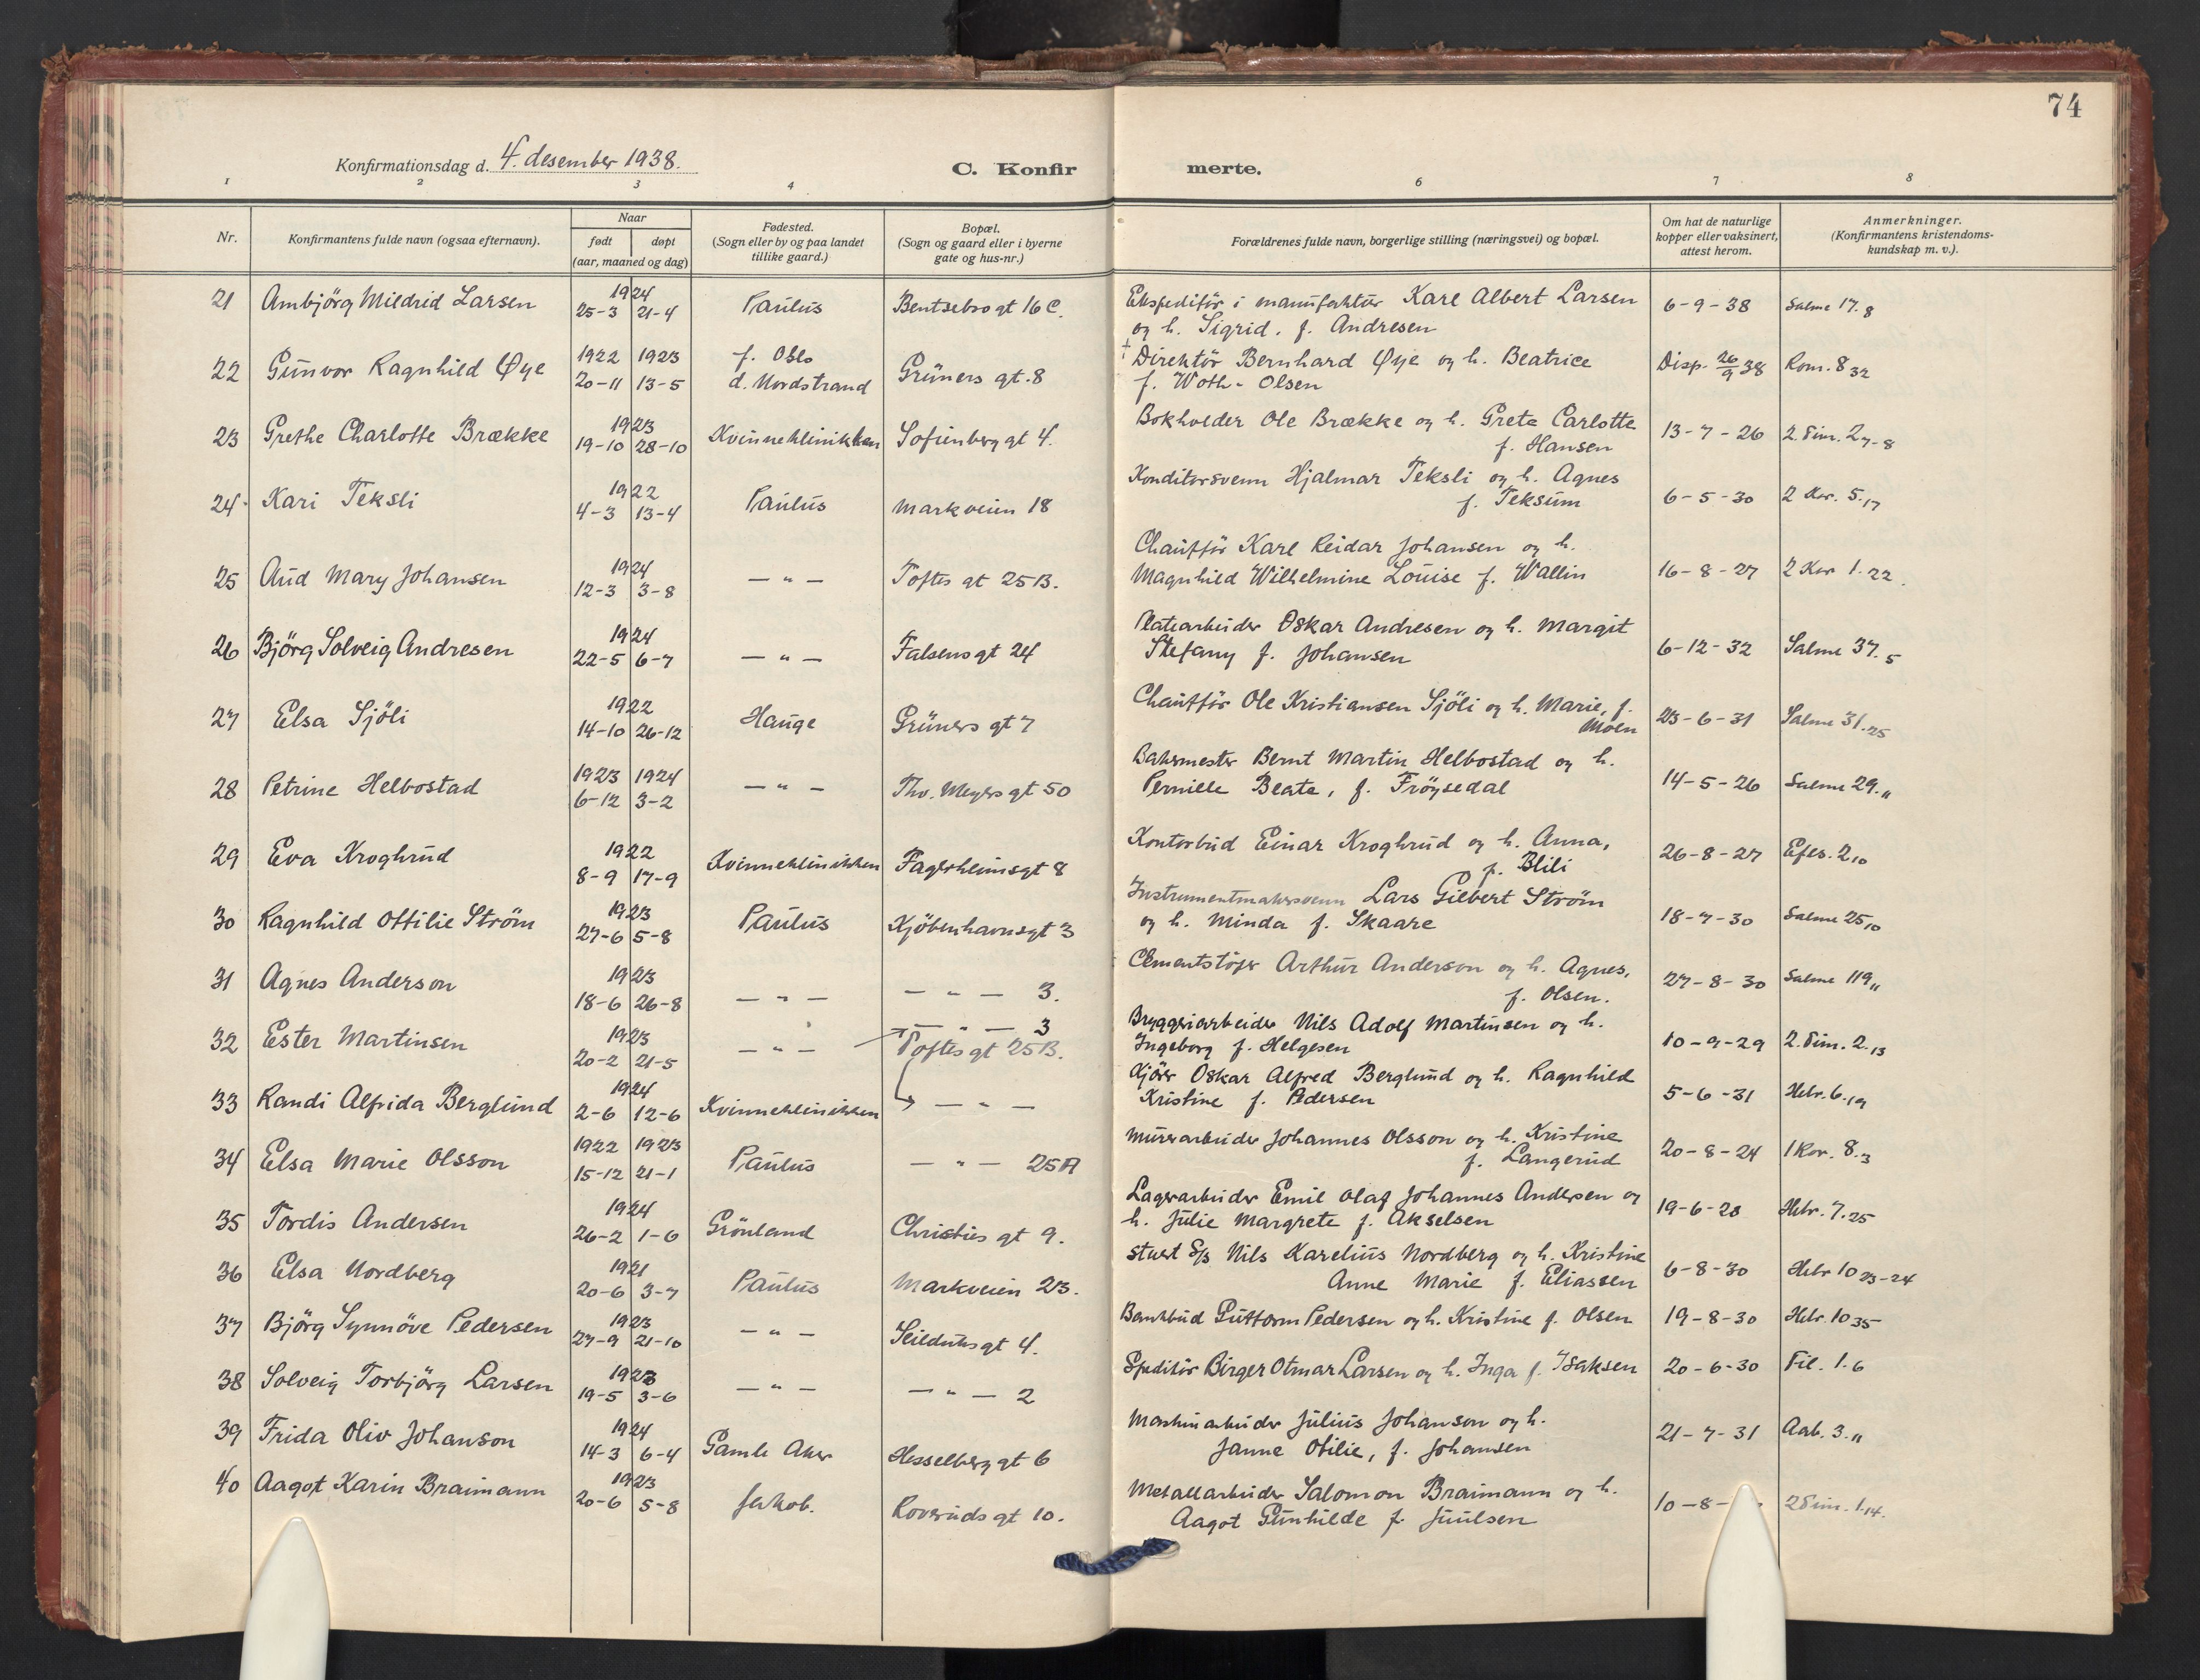 74
Konfirmationsdag d. 4. desember 1938.
C. Konfir merte.
1 2 3 4 6 7 8
Nr.
Konfirmantens fulde navn (ogsaa efternavn).
Naar
født døpt
(aar, maaned og dag)
Fødested.
(Sogn eller by og paa landet
tillike gaard.)
Bopæl.
(Sogn og gaard eller i byerne
gate og hus-nr.)
Forældrenes fulde navn, borgerlige stilling (næringsvei) og bopæl.
Om hat de naturlige
kopper eller vaksinert,
attest herom.
Anmerkninger.
(Konfirmantens kristendoms-
kundskap m. v.).
21 Ambjörg Mildrid Larsen 1924 25-3 21-4 Paulus Bentsebro gt 16 C. Ekspeditör i manufaktur Karl Albert Larsen 6-9-38 Salme 17.8
og h. Sigrid. f. Andresen
22 Gunvor Ragnhild Øye 1922 20-11 1923 13-5 f. Oslo Grüners gt. 8 † Direktör Bernhard Øye og h. Beatrice Disp. 26/9 38 Rom. 8 32
d. Nordstrand f. Woth-Olsen
23 Grethe Charlotte Brække 1923 19-10 28-10 Kvinneklinikken Sofienberg gt 4. Bokholder Ole Brække og h. Grete Carlotte 13-7-26 2. Tim. 2 7-8
f. Hansen
24. Kari Teksli 1922 4-3 13-4 Paulus Markveien 18 Konditorsvenn Hjalmar Teksli og h. Agnes 6-5-30 2 Kor. 5.17
f. Teksum
25 Aud Mary Johansen 1924 12-3 3-8 — " — Toftes gt 25 B. Chaufför Karl Reidar Johansen og h. 16-8-27 2 Kor 1.22.
Magnhild Wilhelmine Louise f. Wallin
26 Björg Solveig Andresen 1924 22-5 6-7 — " — Falsens gt 24 Platearbeider Oskar Andresen og h. Margit 6-12-32 Salme 37.5
Stefany f. Johansen
27 Elsa Sjöli 1922 14-10 26-12 Hauge Grüners gt 7 Chaufför Ole Kristiansen Sjöli og h. Marie, f. 23-6-31 Salme 31.25
Moen
28 Petrine Helbostad 1923 6-12 1924 3-2 — " — Thv. Meyers gt 50 Bakermester Bernt Martin Helbostad og h. 14-5-26 Salme 29.11
Pernille Beata, f. Fröysedal
29 Eva Kroghrud 1922 8-9 17-9 Kvinneklinikken Fagerheimsgt 8 Kontorbud Einar Kroghrud og h. Anna, 26-8-27 Efes. 2 10
f. Blili
30 Ragnhild Ottilie Ström 1923 27-6 5-8 Paulus Kjöbenhavnsgt 3 Instrumentmakersvenn Lars Gilbert Ström 18-7-30 Salme 25 10
og h. Minda f. Skaare
31 Agnes Anderson 1923 18-6 26-8 — " — — " — 3. Cementstöper Arthur Anderson og h. Agnes, 27-8-30 Salme 119 11
f. Olsen.
32 Ester Martinsen 1923 20-2 21-5 — " — — " — 3 Bryggeriarbeider Nils Adolf Martinsen og h. 10-9-29 2. Tim. 2.13
Toftes gt 25 B. Ingeborg f. Helgesen
33 Randi Alfrida Berglund 1924 2-6 12-6 Kvinneklinikken — " — Kjörer Oskar Alfred Berglund og h. Ragnhild 5-6-31 Hebr. 6.19
Kristine f. Pedersen
34 Elsa Marie Olsson 1922 15-12 1923 21-1 Paulus — " — 25 A Murerarbeider Johannes Olsson og h. Kristine 20-8-24 1 Kor. 8.3
f. Langerud
35 Tordis Andersen 1924 26-2 1-6 Grönland Christies gt 9. Lagerarbeider Emil Olaf Johannes Andersen og 19-6-28 Hebr. 7.25
h. Julie Margrete f. Akselsen
36 Elsa Nordberg 1921 20-6 3-7 Paulus Markveien 23. Nils Karelius Nordberg og h. Kristine 6-8-30 Hebr 10 23-24
Anne Marie f. Eliassen
37 Björg Synnöve Pedersen 1923 27-9 21-10 — " — Seilduksgt 4. Bankbud Guttorm Pedersen og h. Kristine f. Olsen 19-8-30 Hebr. 10 35
38 Solveig Torbjörg Larsen 1923 19-5 3-6 — " — — " — 2 Speditör Birger Otmar Larsen og h. Inga f. Isaksen 20-6-30 Fil. 1.6
39 Frida Oliv Johanson 1924 14-3 6-4 Gamle Aker Hesselberg gt 6 Maskinarbeider Julius Johanson og h. 21-7-31 Aab. 3.11
Janne Otilie, f. Johansen
40 Aagot Karin Braimann 1923 20-6 5-8 Jakob. Roveruds gt 10. Metallarbeider Salomon Braimann og h. 10-8- 2 Tim. 1.14.
Aagot Gunhilde f. Juulsen